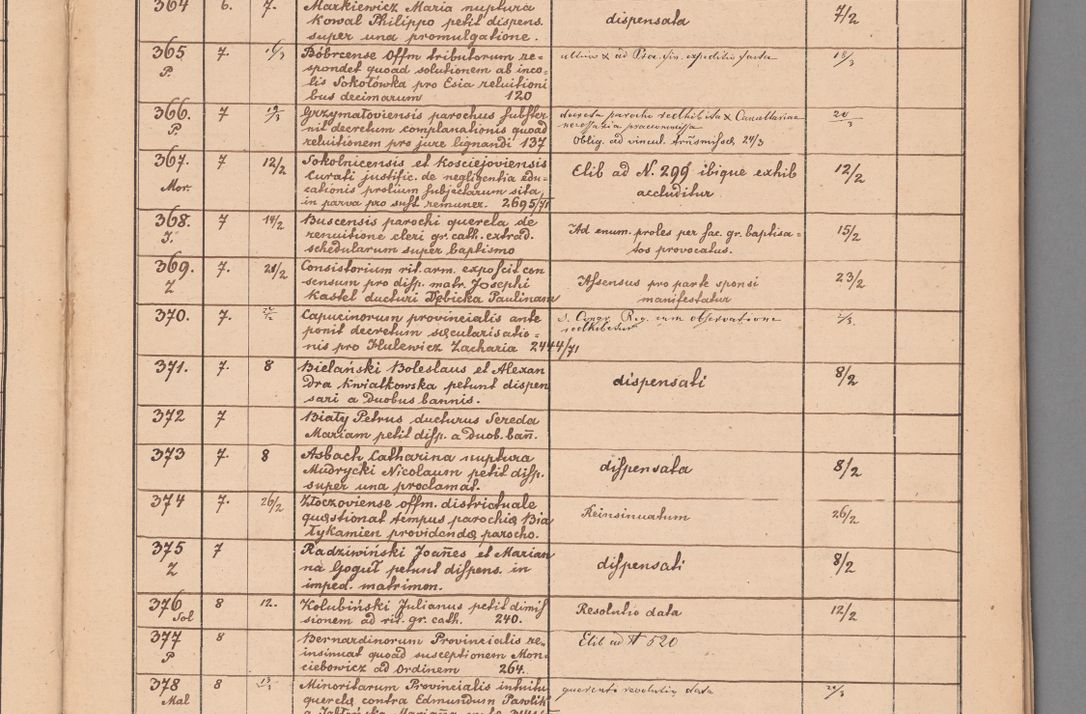 364 6. 7. Markiewicz Maria nuptura
Kowal Philippo petit dispens.
super una promulgatione.
dispensata 7/2
365 7. 16/3 Bóbrcense Offm tributorum re=
P. spondet quoad solutionem ab inco=
lis Sokołówka pro Esia reluitioni
bus decimarum 120
expeditio facta 18/3
366. 7 19/3 Grzymałoviensis parochus subster
P. nit decretum complanationis quoad
reluitionem pro jure lignandi 137
decreta parocho reexhibita & Cancellariae
necessaria praenumissa
Oblig. ad vincul. trnsmisse 24/3
20/3
367. 7 12/2 Sokolnicensis et Kosciejoviensis
Mor. Curati justific. de negligentia edu=
cationis prolium subjectarum sita,
in parva pro sust remuner. 2695/71
Elib ad N. 299 ibique exhib
accluditur
12/2
368. 7 14/2 Buscensis parochi querela de
J. renuitione cleri gr. cath. extrad.
schedularum super baptismo
Ad enum. proles per sac. gr. baptisa=
tos provocatus.
15/2
369. 7. 21/2 Consistorium rit. arm. exposcit con
Z sensum pro disp. matr. Josephi
Kastel ducturi Dębicka Paulinam
Assensus pro parte sponsi
manifestatur
23/2
370. 7. Capucinorum provincialis ante
ponit decretum secularisatio=
nis pro Hulewicz Zacharia 2444/71
S. Congr. Reg. cum observatione
reexhibetur
371. 7. 8 Bielański Boleslaus et Alexan
dra Kwiatkowska petunt dispen
sari a duobus bannis.
dispensati 8/2
372 7 Biały Petrus ducturus Sereda
Mariam petit disp. a duob. bañ.
373 7. 8 Asbach Catharina nuptura
Mudrycki Nicolaum petit disp.
super una proclamat.
dispensata 8/2
374 7. 26/2 Złoczoviense offm. districtuale
quæstionat tempus parochiæ Bia
łykamien providendæ parocho.
Reinsinuatum 26/2
375 7 Radziwiński Joañes et Marian
Z na Goguł petunt dispens. in
imped. matrimon.
dispensati 8/2
376 8 12. Kolubiński Julianus petit dimis
Sol sionem ad rit. gr. cath. 240.
Resolutio data 12/2
377 8 Bernardinorum Provincialis re=
P insinuat quoad susceptionem Mon=
ciebowicz ad Ordinem 264.
Elib ad N 520
378 8 Minoritarum Provincialis intuitu
Mal querelæ contra Edmundum Pawlik
resolutio data